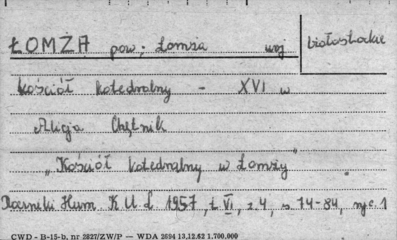 ŁOMŻA pow; Łomża woj białostockie
Kościół katedralny - XVI w
Alicja Chętnik
"Kościół katedralny w Łomży
Roczniki Hum K U L 1957, t. VI, z. 4, s. 74-84, ryc. 1
CWD - B-15-b, nr 2827/ZW/P — WDA 2694 13.12.62 1.700.000